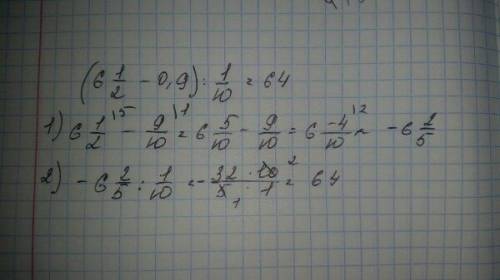 (6 1/2 - 0,9) : 1/10 = 64
1) 6 1/2 \5 - 9/10 \1 = 6 5/10 - 9/10 = 6 -4/10 \2 = -6 2/5
2) -6 2/5 : 1/10 = -32/5 · 10/1 = 64